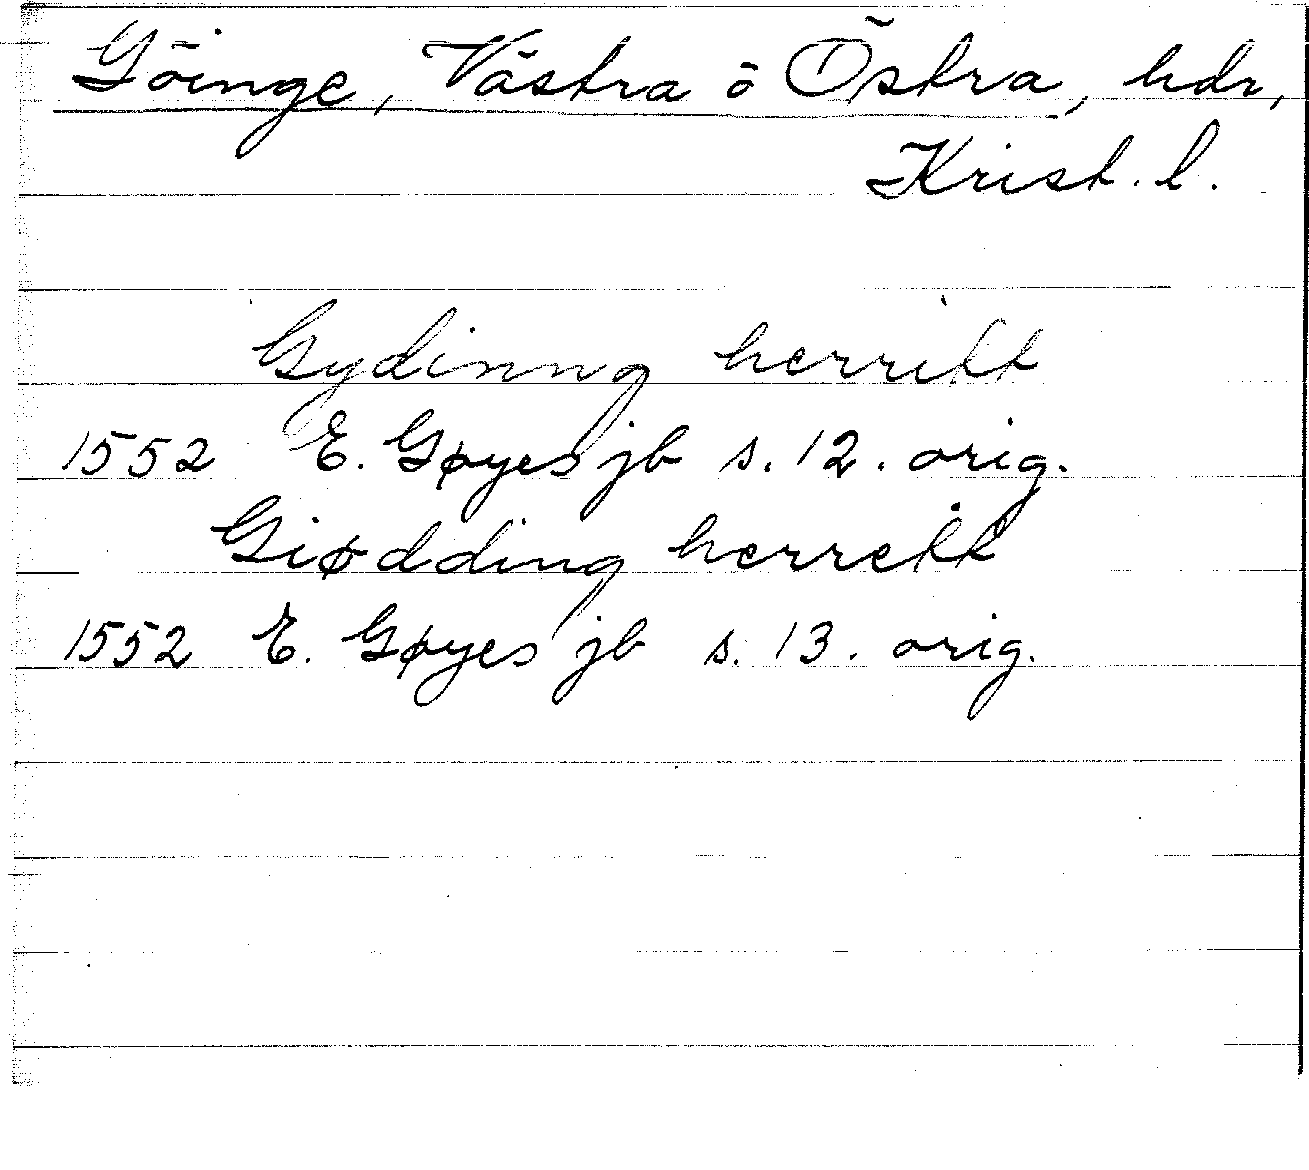 Göinge, Västra o Östra, hdr,
Krist. l.
Gydinng herritt
1552 E. Gøyes jb s. 12. orig.
Giødding herrett
1552 E. Gøyes jb s. 13. orig.